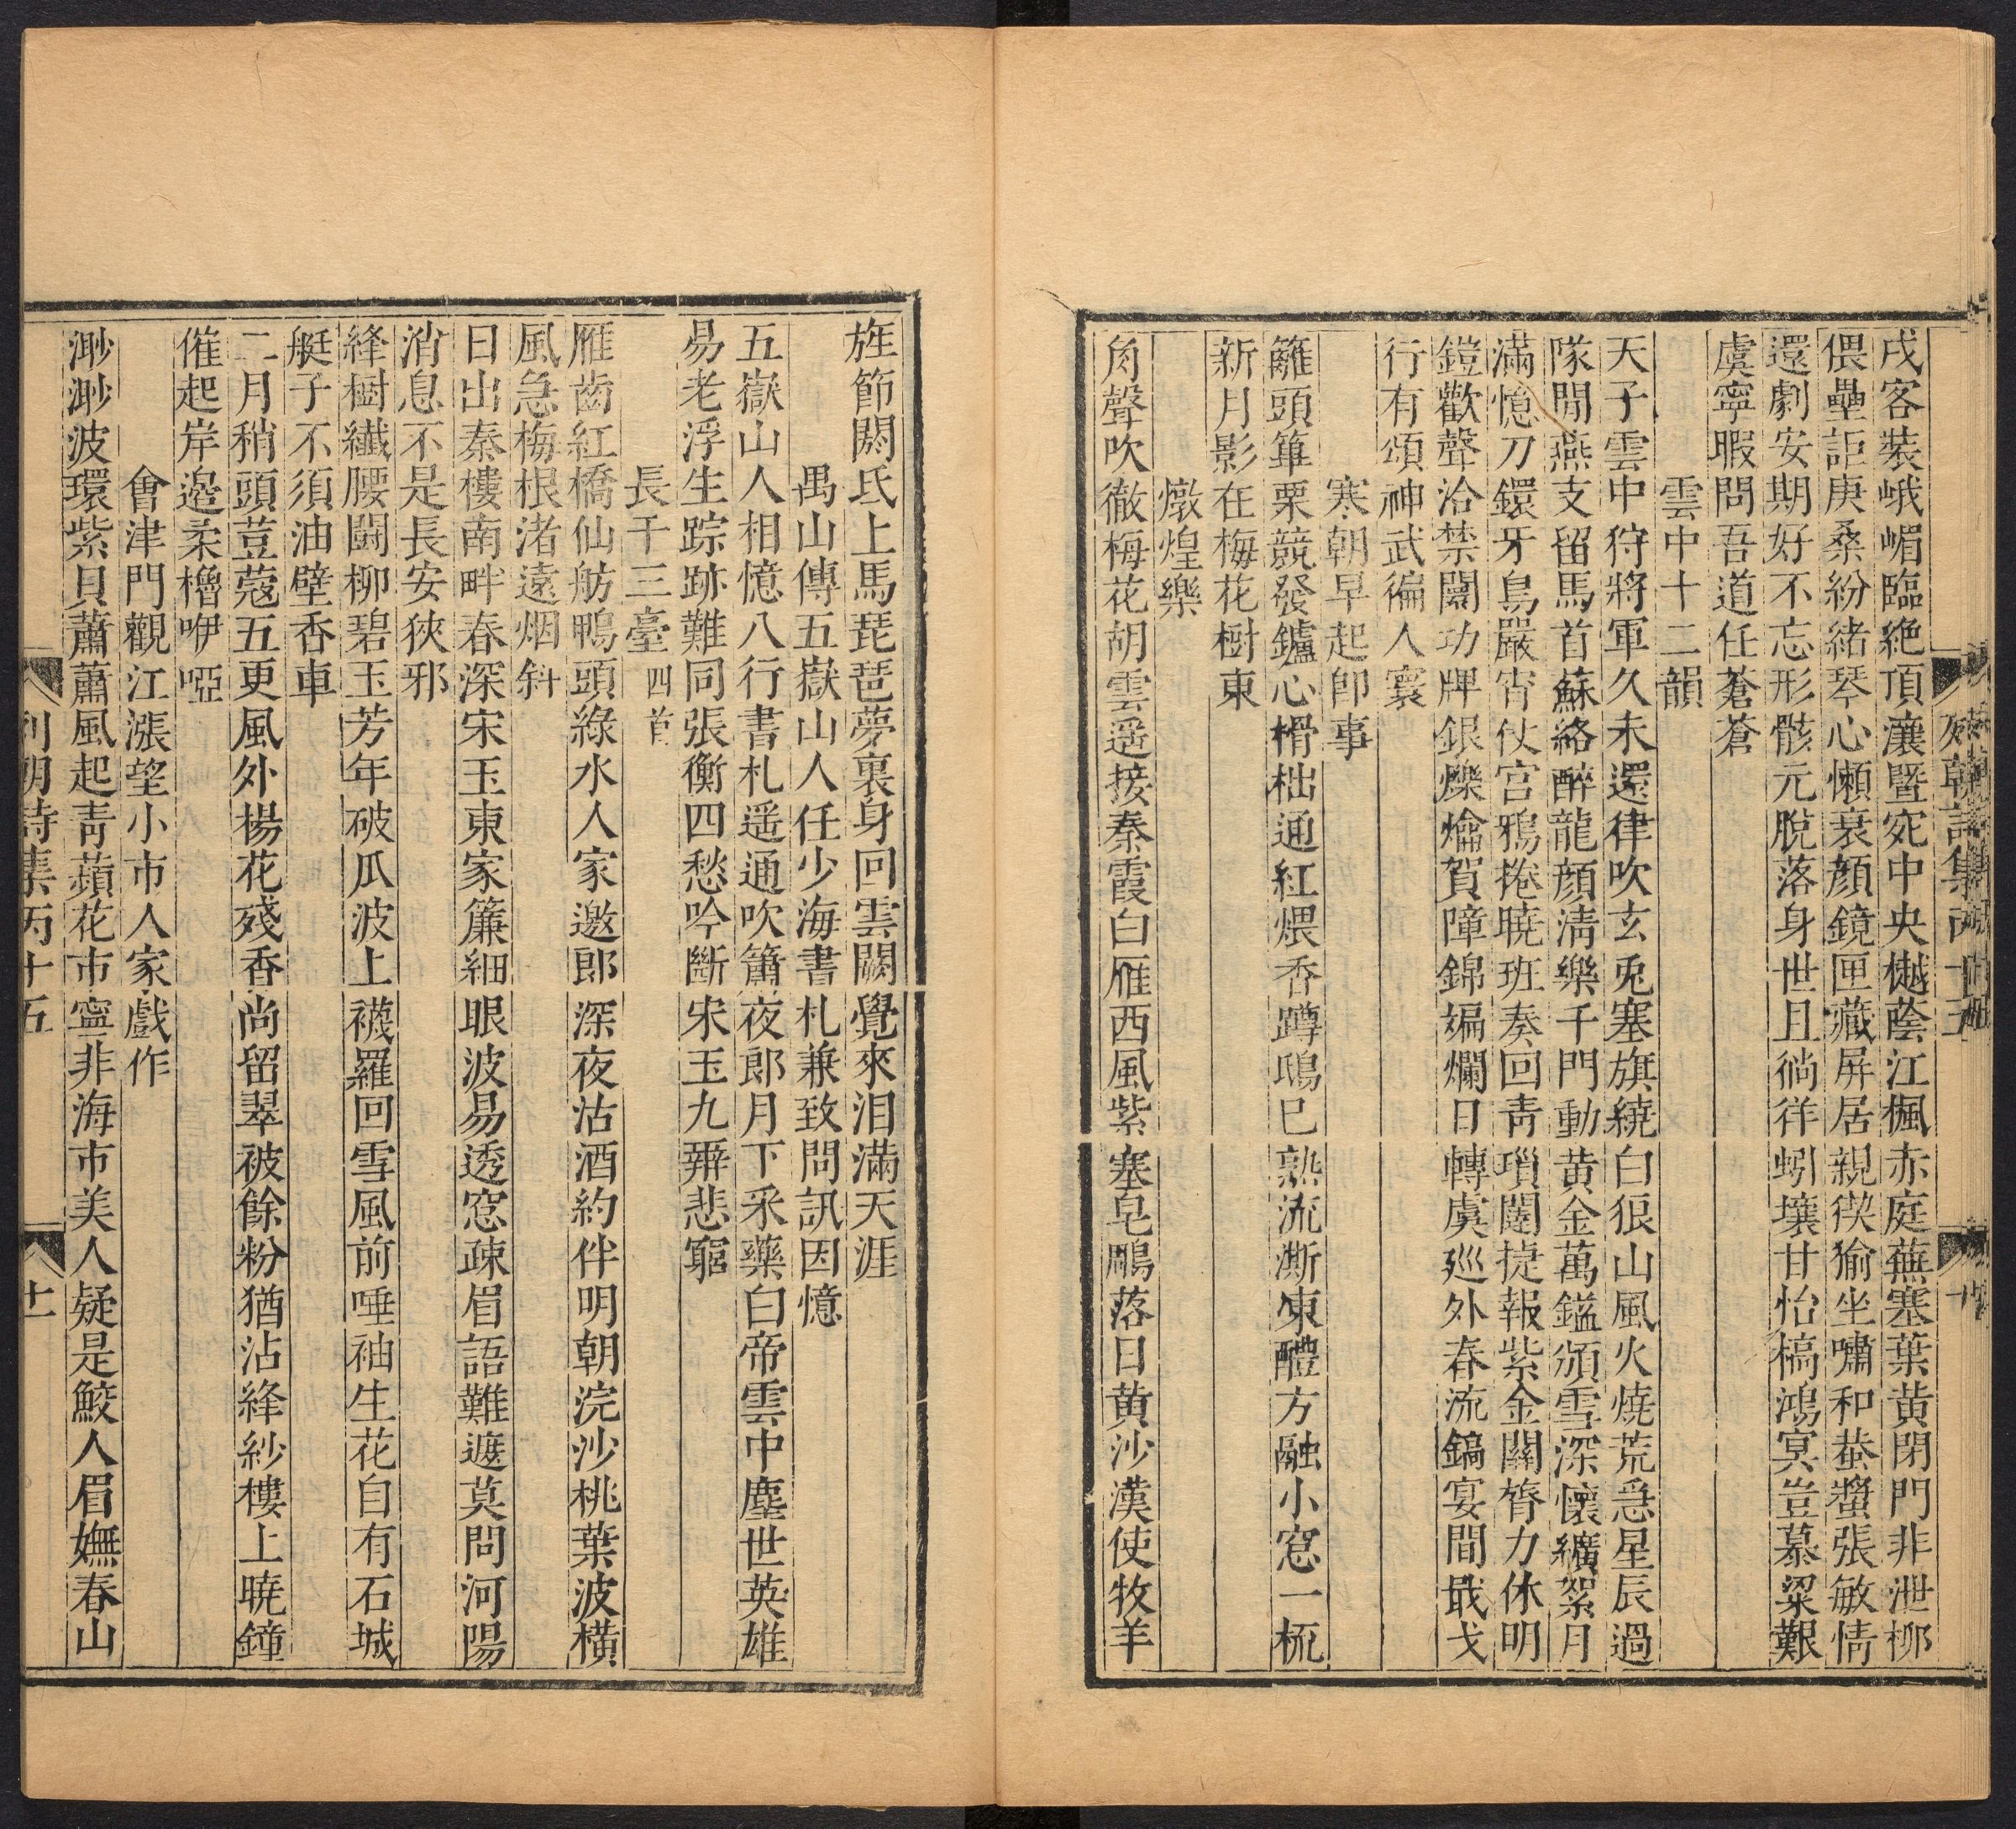 戌客裝峨嵋臨絶頂瀼曁宛中央樾蔭江楓赤庭蕪塞葉黄閉門非泄柳
偎壘詎庚桑紛緒琴心懶衰顔鏡匣藏屏居親猰㺄坐嘯和蛬螿張敏情
還劇安期好不忘形骸元脫落身世且徜徉蚓壤甘怡槁鴻冥豈慕粱艱
虞寧暇問吾道任蒼蒼
雲中十二韻
天子雲中狩將軍久未還律吹玄兎塞旗繞白狼山風火燒荒急星辰過
隊閒燕支留馬首蘇絡醉龍顔淸樂千門動黄金萬鎰頒雪深懷纊絮月
滿憶刀鐶牙鳥嚴宵仗宫鴉捲曉班奏回靑瑣闥捷報紫金關膂力休明
鎧歡聲洽禁闤功牌銀爍爚賀障錦斒斕日轉虞廵外春流鎬宴間戢戈
行有頌神武徧人寰
寒朝早起卽事
籬頭篳栗競發鑪心榾柮通紅煨香蹲鴟已熟流澌凍醴方融小窓一梔
新月影在梅花樹東
燉煌樂
角聲吹徹梅花胡雲遥接秦霞白雁西風紫塞皂鵰落日黄沙漢使牧羊
旌節閼氏上馬琵琶夢裏身回雲闕覺來泪滿天涯
禺山傳五嶽山人任少海書札兼致問訊因憶
五嶽山人相憶八行書札遥通吹簫夜郎月下采藥白帝雲中塵世英雄
易老浮生踪跡難同張衡四愁吟斷宋玉九辯悲窮
長干三臺四首
雁齒紅橋仙舫鴨頭綠水人家邀郎深夜沽酒約伴明朝浣沙桃葉波横
風急梅根渚遠烟斜
日出秦樓南畔春深宋玉東家簾細眼波易透窓疎眉語難遮莫問河陽
消息不是長安狹邪
絳樹纎腰鬭柳碧玉芳年破瓜波上襪羅回雪風前唾袖生花自有石城
艇子不須油壁香車
二月稍頭荳蔻五更風外楊花殘香尚留翠被餘粉猶沾絳紗樓上曉鐘
催起岸邉柔櫓咿啞
會津門觀江漲望小市人家戲作
渺渺波環紫貝蕭蕭風起靑蘋花市寧非海市美人疑是鮫人眉嫵春山
列朝詩集丙十五
十一